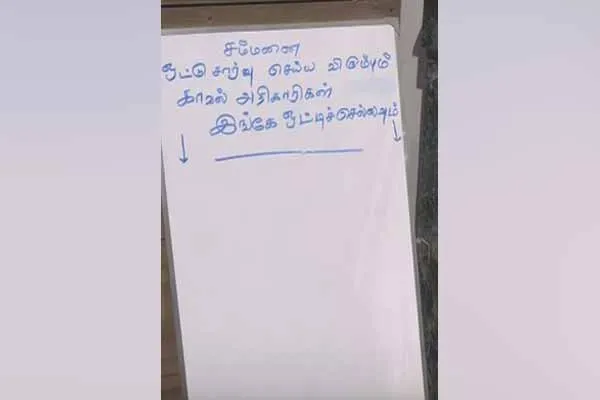 சம்மனை
ஒட்டு சார்வு செய்ய விரும்பும்
காவல் அதிகாரிகள்
இங்கே ஒட்டிச்செல்லவும்